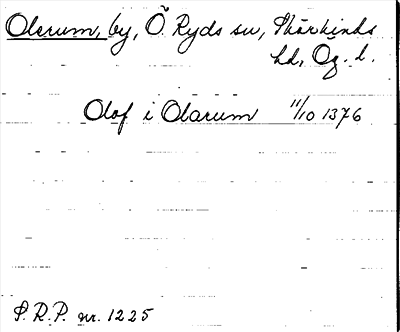 Olerum, by, Ö. Ryds sn, Skärkinds
hd, Ög. l.
Olof i Olarum 11/10 1376
S.R.P. nr. 1225